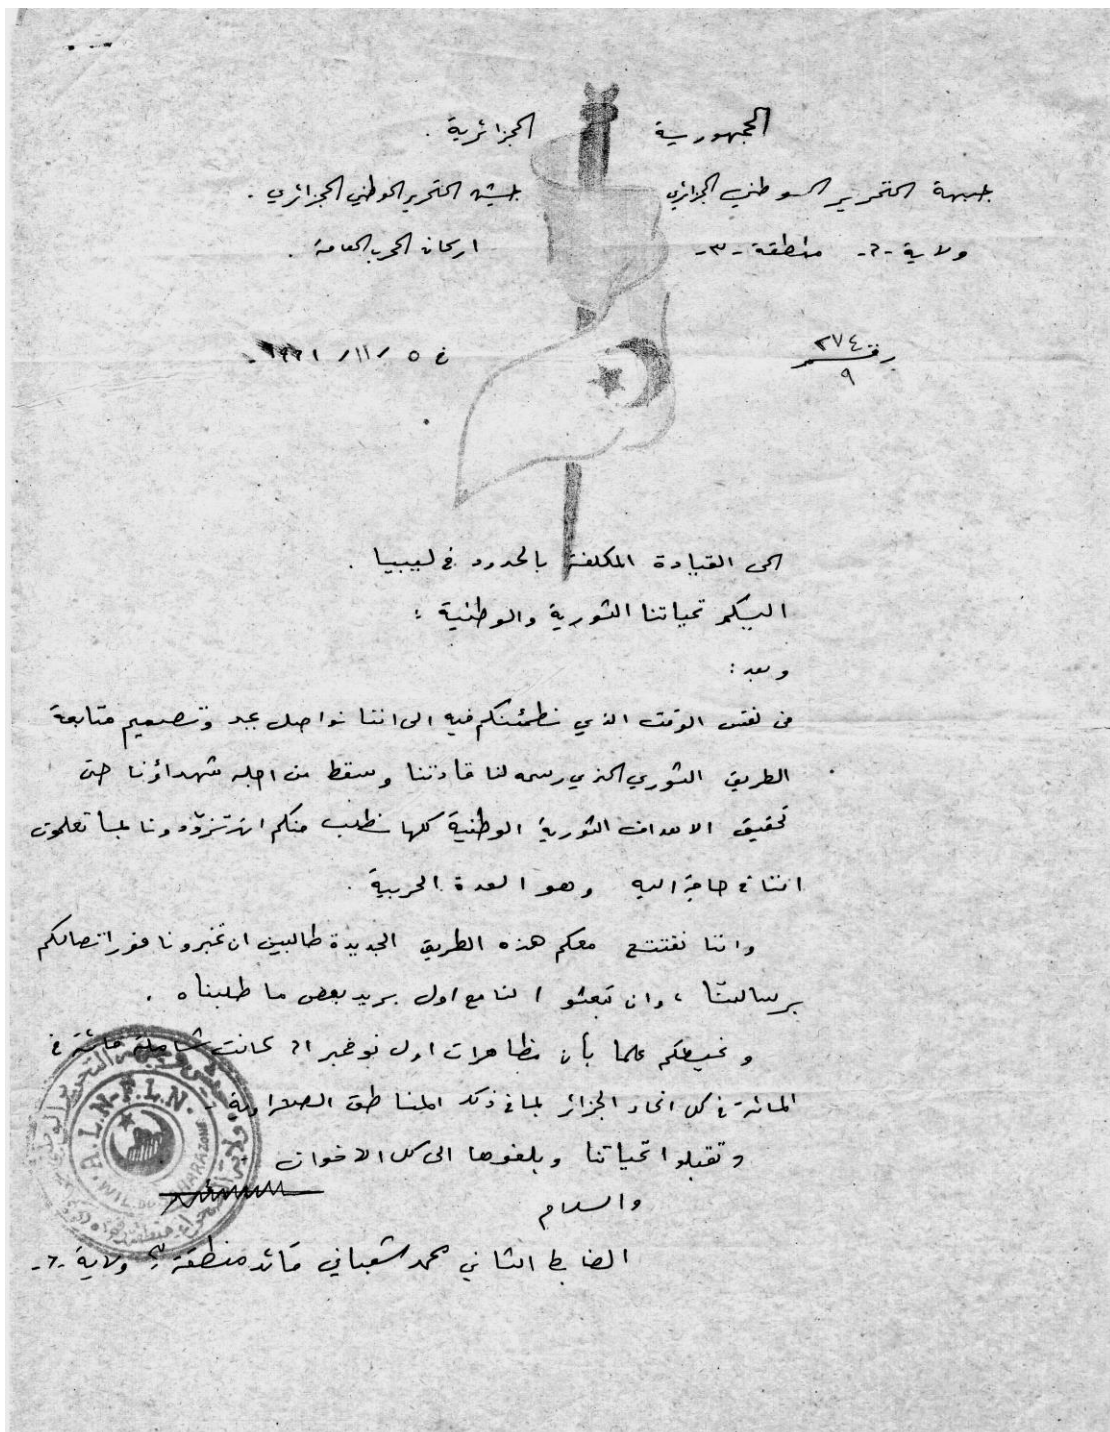 الجمهورية الجزائرية .
جبهة التحرير الوطني الجزائري جيش التحرير الوطني الجزائري .
ولاية -٦- منطقة -٣- اركان الحرب العامة .
رقم ٢٧٤ / ٩ في ٥ / ١١ / ١٩٦١ .
الى القيادة المكلفة بالحدود في ليبيا .
اليكم تحياتنا الثورية والوطنية :
وبعد :
في نفس الوقت الذي نطمئنكم فيه الى اننا نواصل بجد وتصميم متابعة
الطريق الثوري الذي رسمه لنا قادتنا وسقط من اجله شهداؤنا حتى
تحقيق الاهداف الثورية الوطنية كلها نطلب منكم ان تزودونا بما تعلمون
اننا في حاجة اليه وهو العدة الحربية .
واننا نفتتح معكم هذه الطريق الجديدة طالبين ان تخبرونا فور اتصالكم
برسالتنا ، وان تبعثوا لنا مع اول بريد بعض ما طلبناه .
ونحيطكم علما بأن مظاهرات اول نوفمبر كانت شاملة مائة في
المائة في كل انحاء الجزائر بما في ذلك المناطق الصحراوية .
وتقبلوا تحياتنا وبلغوها الى كل الاخوان
والسلام
الضابط الثاني محمد شعباني قائد منطقة ٣ ولاية -٦-
A.L.N-F.L.N.
WIL. DU SAHARA ZONE